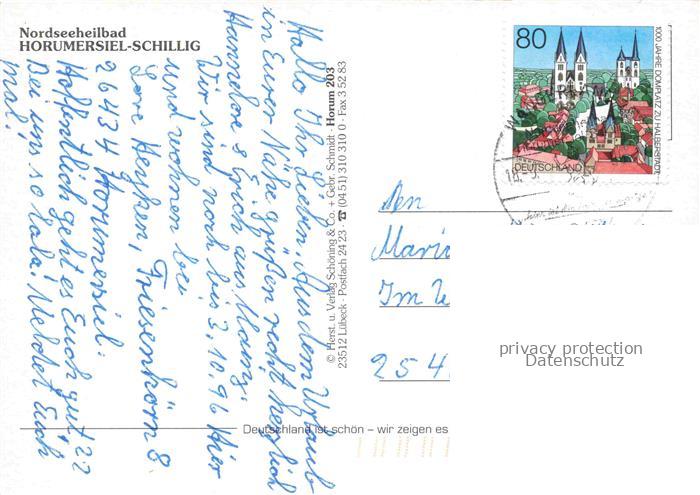 Nordseeheilbad
HORUMERSIEL-SCHILLIG
Hallo Ihr Lieben, Aus dem Urlaub
in Eurer Nähe grüßen recht herzlich
Hannelore & Erich aus Mainz.
Wir sind noch bis 3.10.96 Hier
und wohnen bei
Lore Heyken, Friesenhörn 8
26434 Horumersiel.
Hoffentlich geht es Euch gut??
Bei uns so lala! Meldet Euch
mal!
© Herst. u. Verlag Schöning & Co. + Gebr. Schmidt · Horum 203
23512 Lübeck · Postfach 24 23 · ☎ (04 51) 310 310 0 · Fax 3 52 83
80
1000 JAHRE DOMPLATZ ZU HALBERSTADT
DEUTSCHLAND
Den
Im
254
privacy protection
Datenschutz
Deutschland ist schön – wir zeigen es